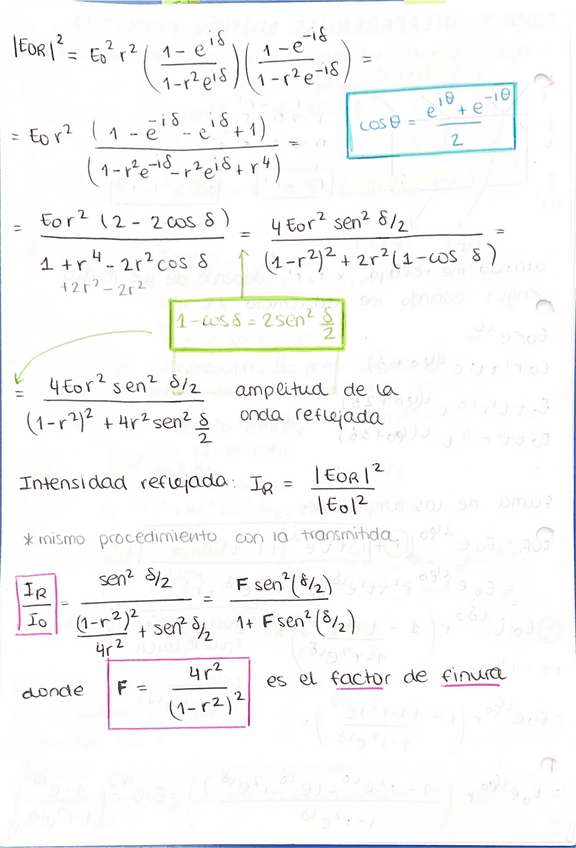 |E0R|² = E0² r² ( (1 - e^{iδ}) / (1 - r² e^{iδ}) ) ( (1 - e^{-iδ}) / (1 - r² e^{-iδ}) ) =
cosθ = (e^{iθ} + e^{-iθ}) / 2
= E0 r² (1 - e^{-iδ} - e^{iδ} + 1) / (1 - r² e^{-iδ} - r² e^{iδ} + r⁴) =
= E0 r² (2 - 2 cos δ) / (1 + r⁴ - 2r² cos δ) = 4 E0 r² sen² δ/2 / ((1 - r²)² + 2r² (1 - cos δ)) =
+2r² - 2r²
1 - cos δ = 2 sen² δ/2
= 4 E0 r² sen² δ/2 / ((1 - r²)² + 4r² sen² δ/2) amplitud de la
onda reflejada
Intensidad reflejada: I_R = |E0R|² / |E0|²
* mismo procedimiento con la transmitida.
I_R / I_0 = sen² δ/2 / ((1 - r²)² / 4r² + sen² δ/2) = F sen² (δ/2) / (1 + F sen² (δ/2))
donde F = 4r² / (1 - r²)² es el factor de finura